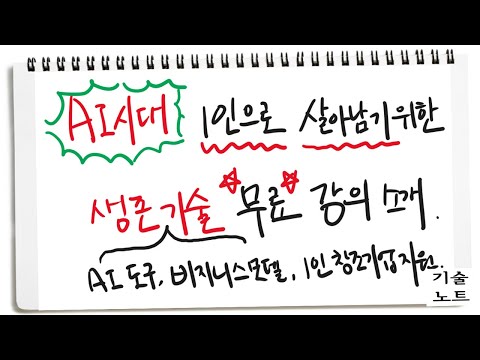 AI시대 1인으로 살아남기 위한
생존기술 무료 강의 소개.
AI 도구, 비지니스모델, 1인 창조기업 지원.
기술
노트